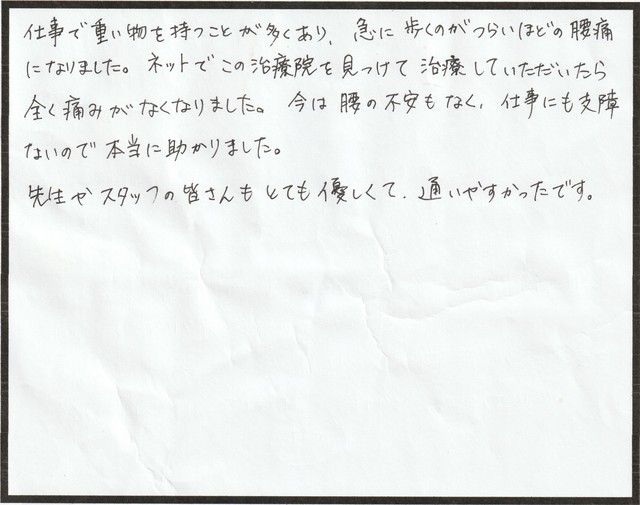 仕事で重い物を持つことが多くあり、急に歩くのがつらいほどの腰痛
になりました。ネットでこの治療院を見つけて治療していただいたら
全く痛みがなくなりました。今は腰の不安もなく、仕事にも支障
ないので本当に助かりました。
先生やスタッフの皆さんもとても優しくて、通いやすかったです。